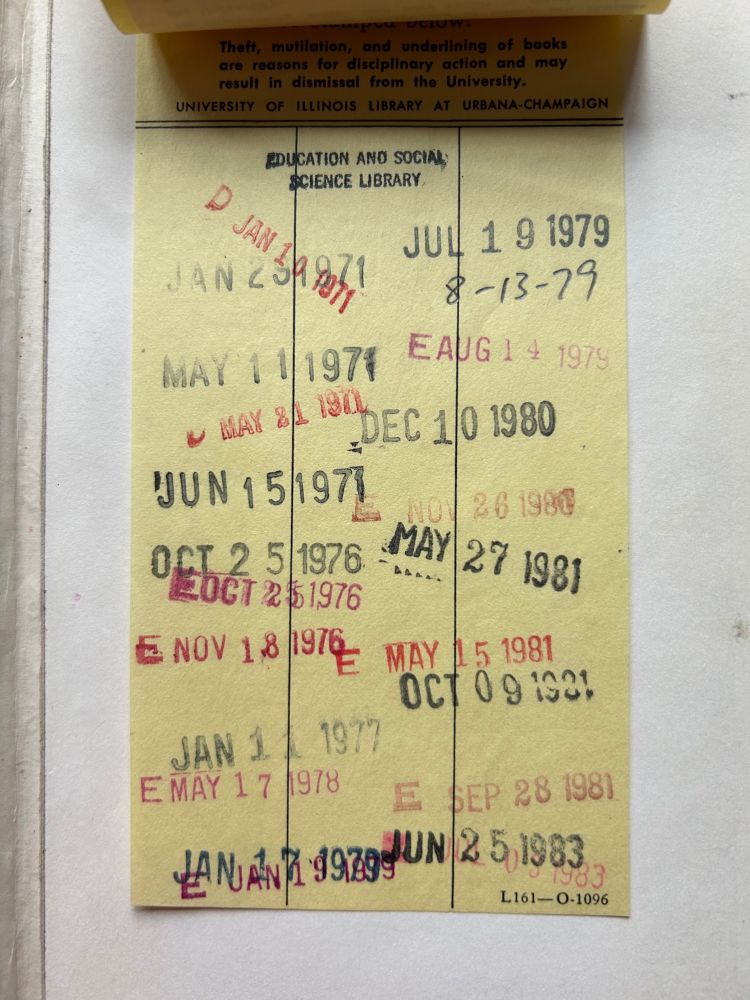 stamped below.
Theft, mutilation, and underlining of books
are reasons for disciplinary action and may
result in dismissal from the University.
UNIVERSITY OF ILLINOIS LIBRARY AT URBANA-CHAMPAIGN
EDUCATION AND SOCIAL
SCIENCE LIBRARY
D JAN 10 1971
JAN 25 1971
MAY 11 1971
D MAY 21 1971
JUN 15 1971
OCT 25 1976
E OCT 25 1976
E NOV 18 1976
JAN 11 1977
E MAY 17 1978
JAN 17 1979
E JAN 19 1979
JUL 19 1979
8-13-79
E AUG 14 1979
DEC 10 1980
E NOV 26 1980
MAY 27 1981
E MAY 15 1981
OCT 09 1981
E SEP 28 1981
JUN 25 1983
1983
L161—O-1096